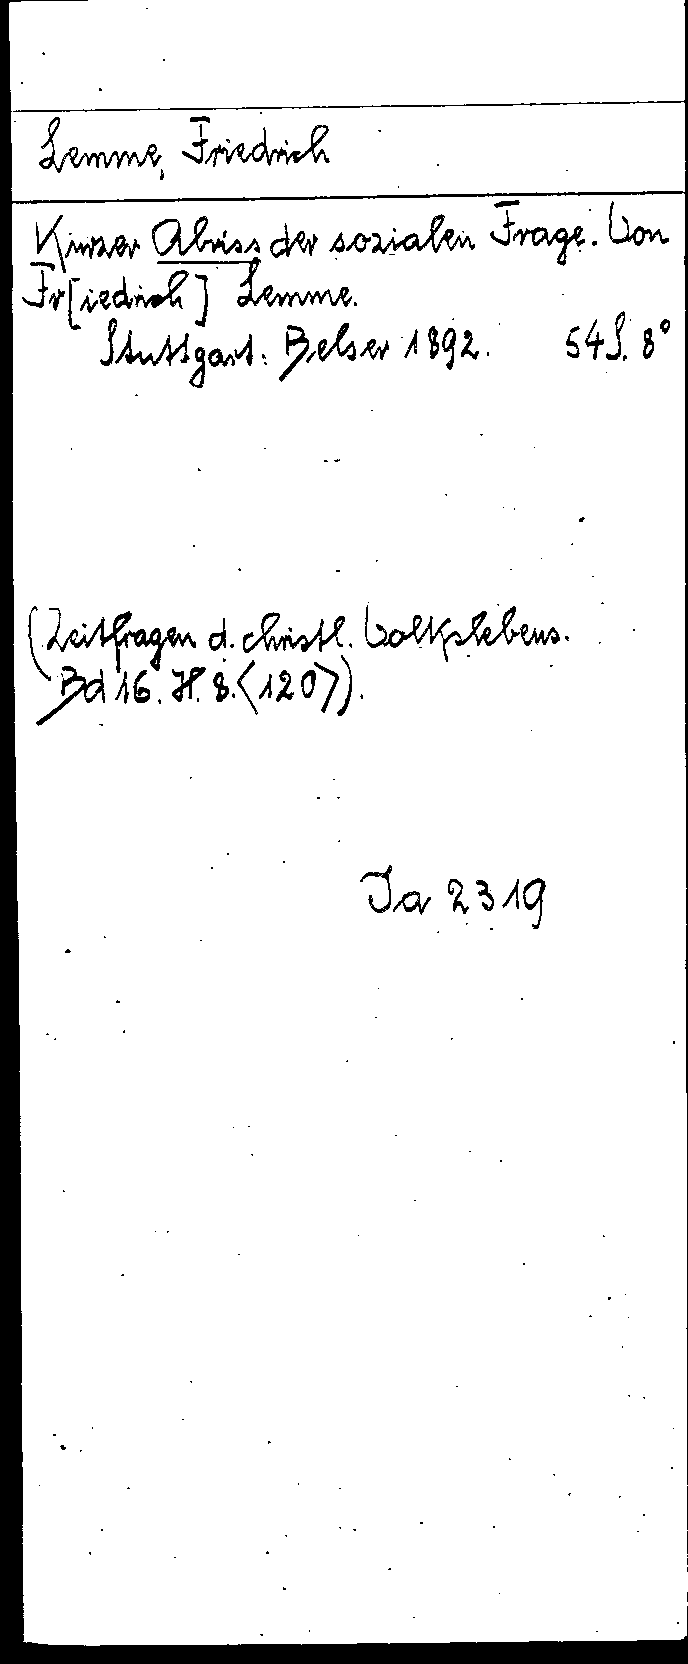 Lemme, Friedrich
Kurzer Abriss der sozialen Frage. Von
Fr[iedrich] Lemme.
Stuttgart: Belser 1892. 54 S. 8°
(Zeitfragen d. christl. Volkslebens.
Bd 16. H. 8. <120>).
Ia 2319